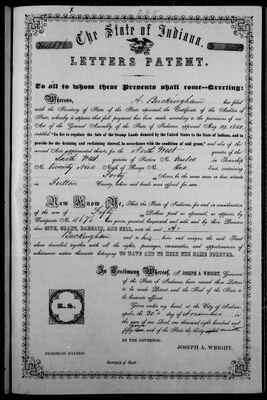 The State of Indiana.
LETTERS PATENT.
To all to whom these Presents shall come—Greeting:
Whereas, A. Buckingham has filed
with the Secretary of State of the State aforesaid the Certificate of the Auditor of
State, whereby it appears that full payment has been made according to the provisions of an
Act of the General Assembly of the State of Indiana, approved May 29, 1852,
entitled "An act to regulate the Sale of the Swamp Lands donated by the United States to the State of Indiana, and to
provide for the draining and reclaiming thereof, in accordance with the condition of said grant," and also of the
several Acts supplemental thereto, for the North West quarter of the
South West quarter of Section No. Twelve in Township
No. Twenty Nine North, of Range No. East, containing
Forty Acres, be the same more or less, situate
in Fulton County, taken and made since approval for sale.
Now Know Ye, That the State of Indiana, for and in consideration
of the sum of Fifty Dollars, paid as aforesaid, as appears by
Certificate No. has given, granted, bargained and sold, and by these Presents
doth GIVE, GRANT, BARGAIN, AND SELL, unto the said A.
Buckingham
and to heirs and assigns the said Tract
above described, together with all the rights, passages, easements, and appurtenances of
whatsoever nature thereunto belonging TO HAVE AND TO HOLD THE SAME FOREVER.
In Testimony Whereof, I, JOSEPH A. WRIGHT, Governor
of the State of Indiana, have caused these Letters
to be made Patent, and the Seal of the State to
be hereunto affixed.
Given under my hand, at the City of Indianapolis,
upon the 30th day of November in
the year of our Lord, one thousand eight hundred and
fifty and of the State the thirty
L.S.
BY THE GOVERNOR:
JOSEPH A. WRIGHT.
Secretary of State.